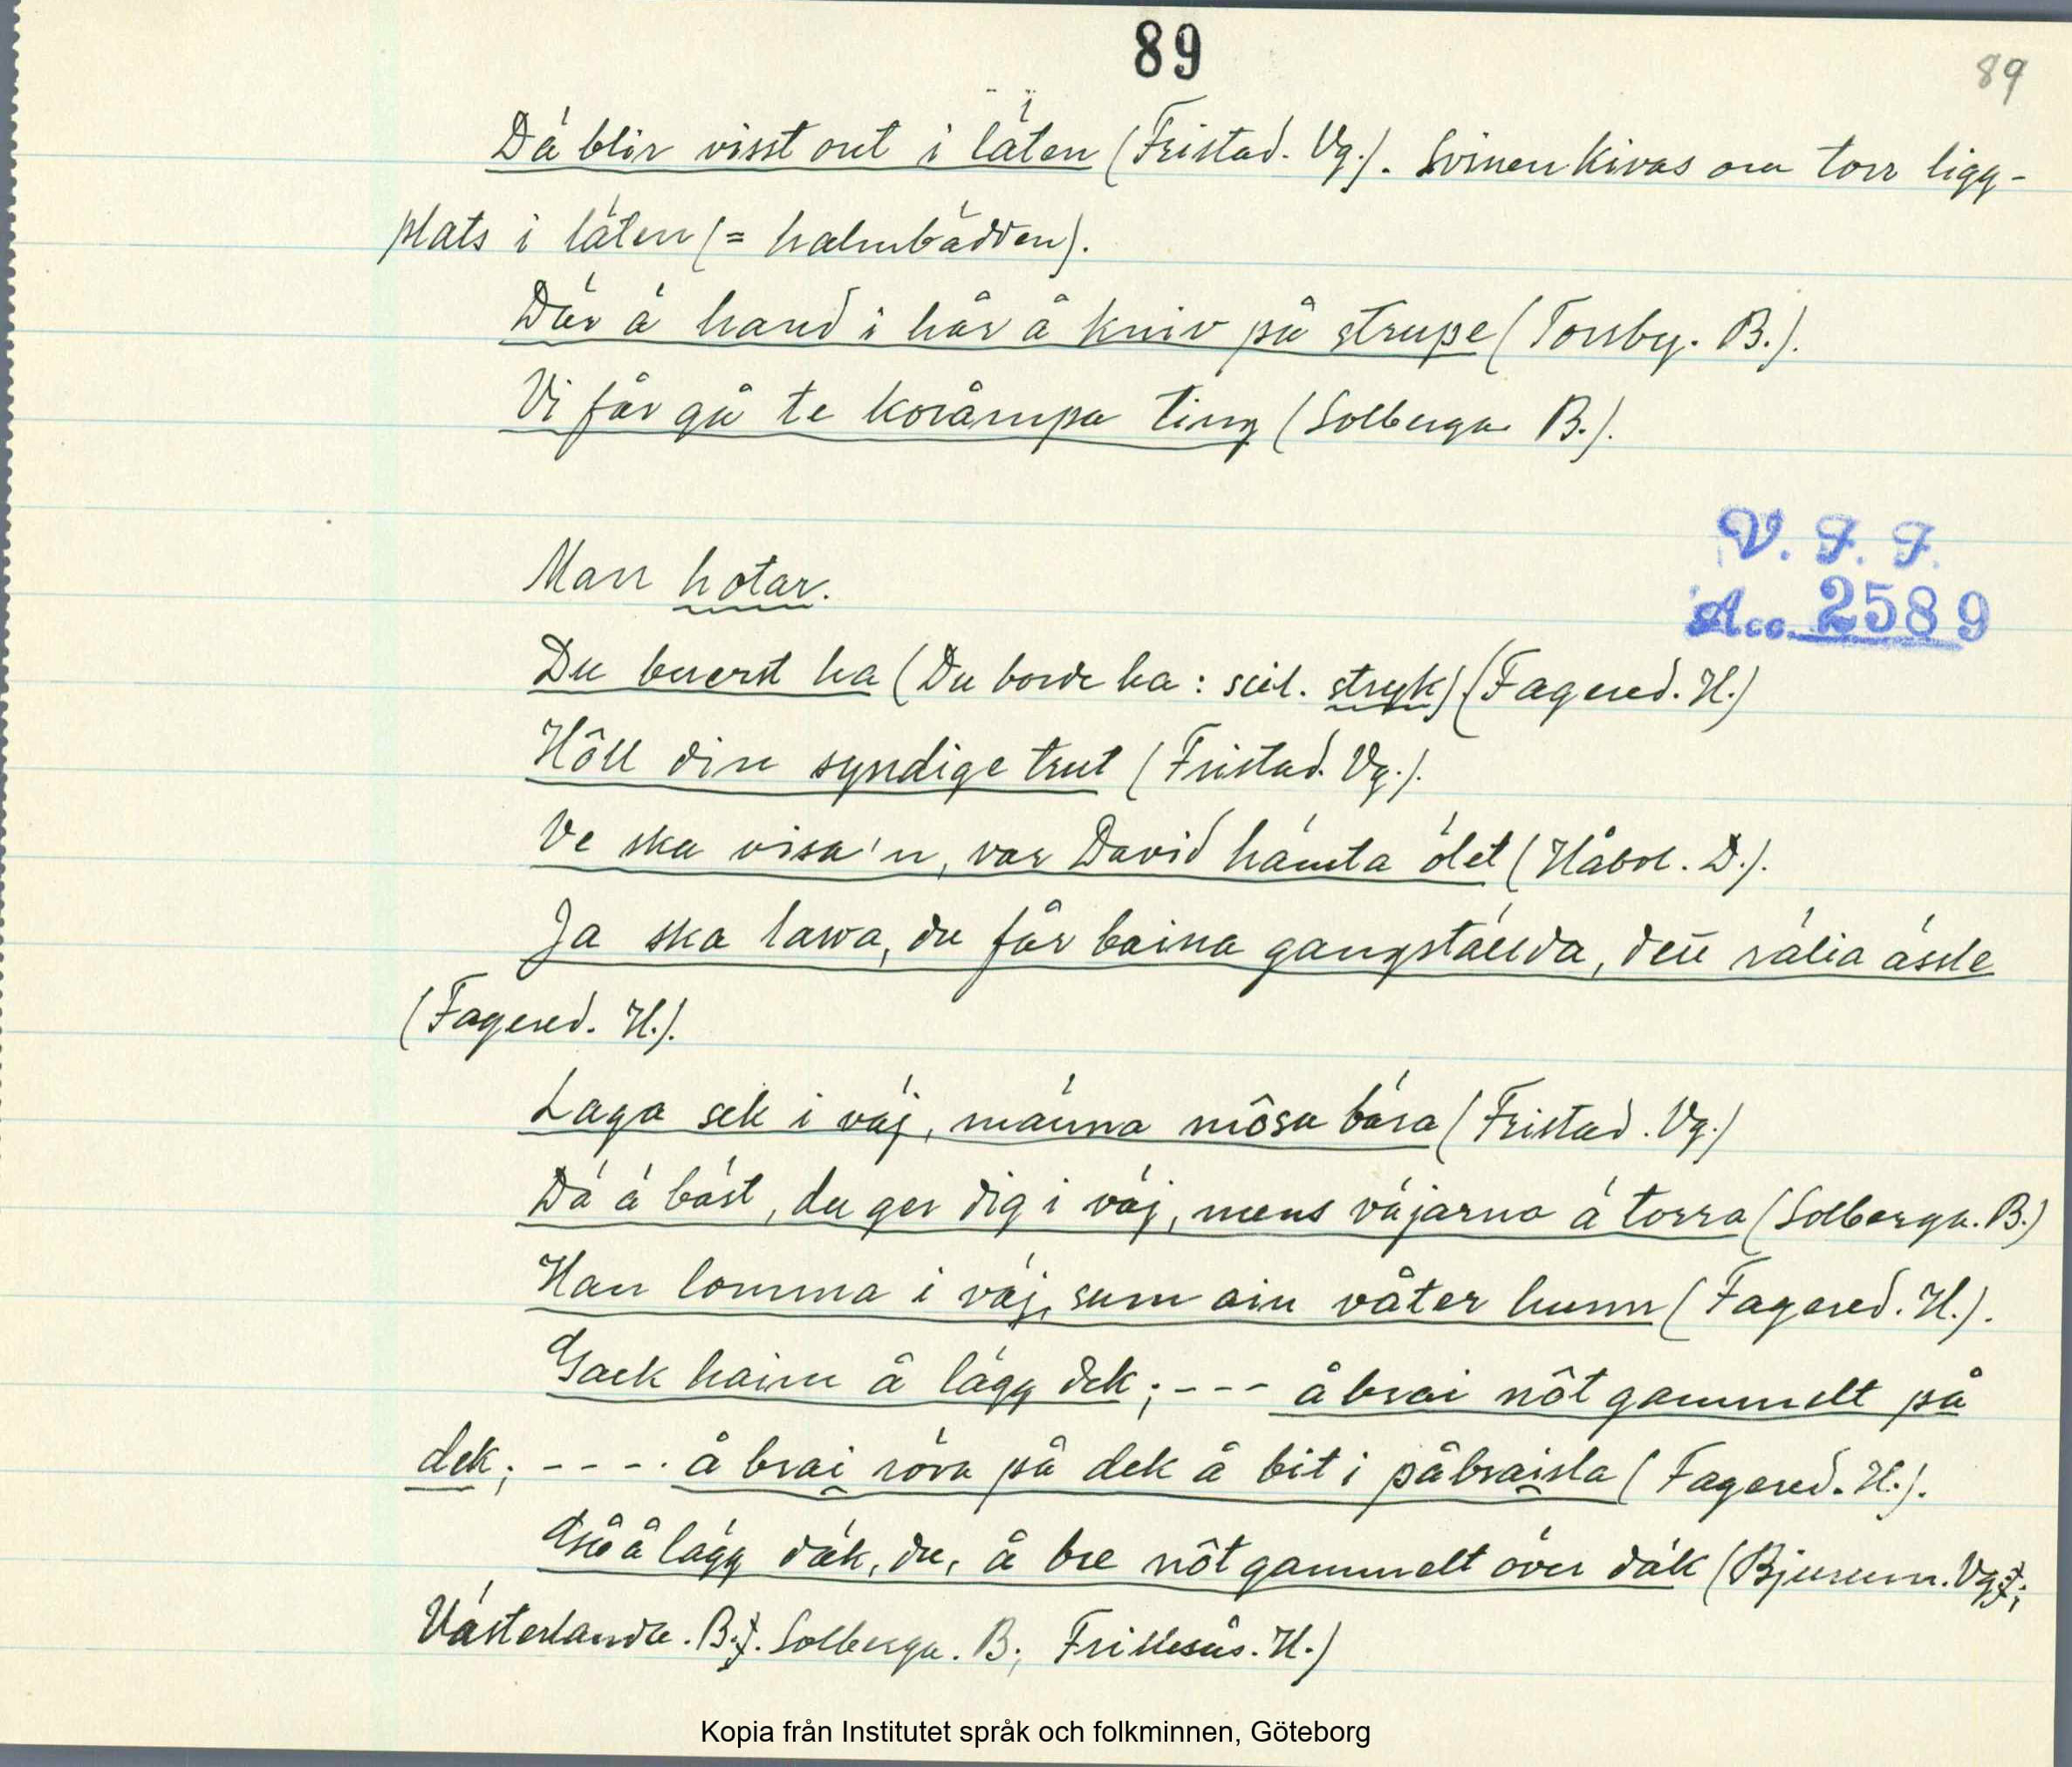 89
89
Dä blir visst ont i läten (Fristad. Vg.). Svinen kivas om torr ligg-
plats i läten (= halmbädden).
Där ä hand i hår å kniv på strupe (Torsby. B.).
Vi får gå te korámpa ting (Solberga B.).
V. F. F.
Acc. 2589
Man hotar.
Du buerst ha (Du borde ha: scil. stryk) (Fagered. H.)
Hôll din syndige trut (Fristad. Vg.).
Ve ska visa'n, var David hämta ölet (Håbol. D.).
Ja ska lawa, du får baina gangställda, din rälia ässle
(Fagered. H.).
Laga sek i väj, männa môsa bära (Fristad. Vg.)
Dä ä bäst, du ger dig i väj, mens väjarna ä torra (Solberga. B.)
Han lomma i väj, sum ain våter hunn (Fagered. H.).
Gack haim å lägg dek; --- å brai nôt gammelt på
dek; ---- å brai röva på dek å bit i påbraisla (Fagered. H.).
Gå å lägg däk, du, å bre nôt gammelt över däk (Bjurum. Vg.;
Västerlanda. B.; Solberga. B; Frillesås. H.)
Kopia från Institutet språk och folkminnen, Göteborg